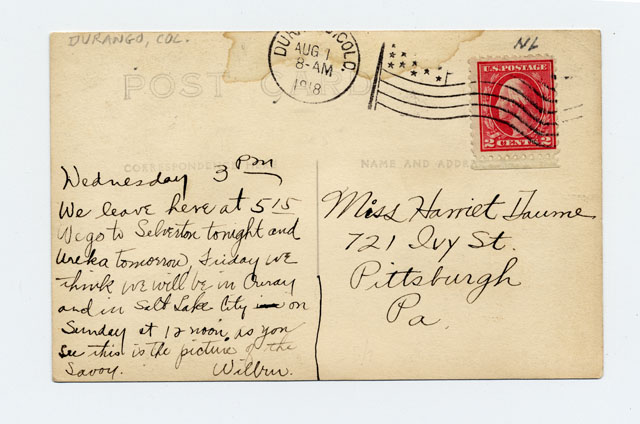 DURANGO, COL.
NL
DURANGO, COLO.
AUG 1
8-AM
1918
U.S. POSTAGE
2 CENTS 2
POST CARD
CORRESPONDENCE
NAME AND ADDRESS
Wednesday 3 PM
We leave here at 5 15
We go to Selverton tonight and
Ureka tomorrow, Friday we
think we will be in Ouray
and in Salt Lake City on
Sunday at 12 noon. as you
see this is the picture of the
Savoy. Wilbur.
Miss Harriet Daume
721 Ivy St.
Pittsburgh
Pa.